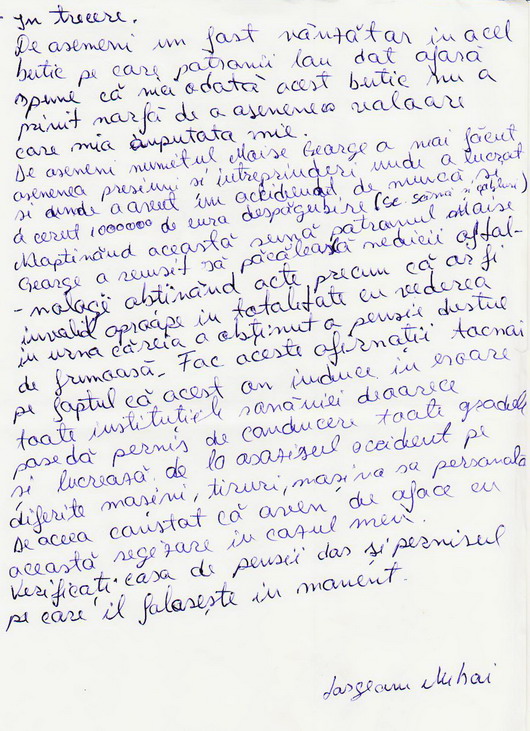 In trecere.
De asemeni un fost vânzător în acel
butic pe care patronii lau dat afară
spune că nici odată acest butic nu a
primit marfă de a asemenea valoare
care mia imputata mie.
De asemeni numitul Moise George a mai făcut
asemenea presiuni si intreprinderi unde a lucrat
si unde a avut un accident de muncă si
a cerut 1000000 de euro despăgubire (Se
Maptinând această sumă patronul Moise
George a reusit să păcălească medicii oftal-
- mologi obținând acte precum că ar fi
invalid aproape in totalitate cu vederea
in urma căreia a obținut o pensie destul
de frumoasă. Fac aceste afirmații tocmai
pe faptul că acest om induce in eroare
toate instituțiile României deoarece
posedă permis de conducere toate gradele
și lucrează de la asazisul accident pe
diferite masini, tiruri, masina sa personală
De aceea constat că avem de aface cu
această in cazul meu.
Verificați casa de pensii dos și permisul
pe care îl folosește in moment.
Mihai